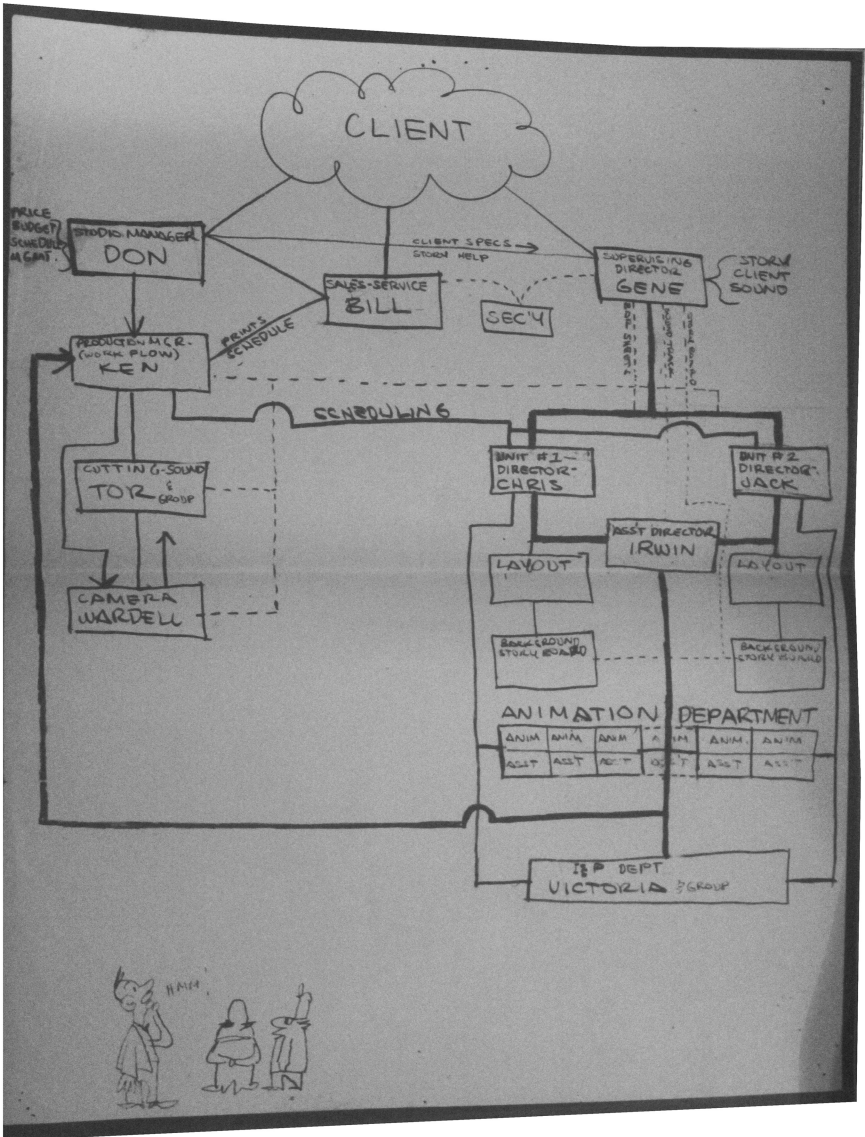 CLIENT
PRICE
BUDGET
SCHEDULE
MGMT.
STUDIO MANAGER
DON
CLIENT SPECS
STORY HELP
SUPERVISING
DIRECTOR
GENE
STORY
CLIENT
SOUND
SALES-SERVICE
BILL
SEC'Y
PRODUCTION MGR.
(WORK FLOW)
KEN
PRINTS
SCHEDULE
SCHEDULING
CUTTING-SOUND
TOR & GROUP
UNIT #1-
DIRECTOR-
CHRIS
UNIT #2
DIRECTOR-
JACK
ASS'T DIRECTOR
IRWIN
LAYOUT
LAYOUT
CAMERA
WARDELL
BACKGROUND
STORY BOARD
BACKGROUND
STORY BOARD
ANIMATION DEPARTMENT
ANIM ANIM ANIM ANIM ANIM. ANIM
ASS'T ASS'T ASS'T ASS'T ASS'T ASS'T
I&P DEPT
VICTORIA & GROUP
HMM.